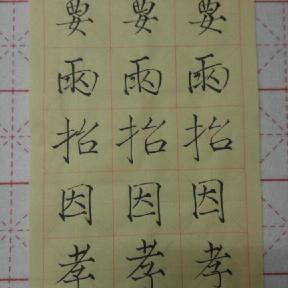 要要要
雨雨雨
抬抬抬
因因因
孝孝孝